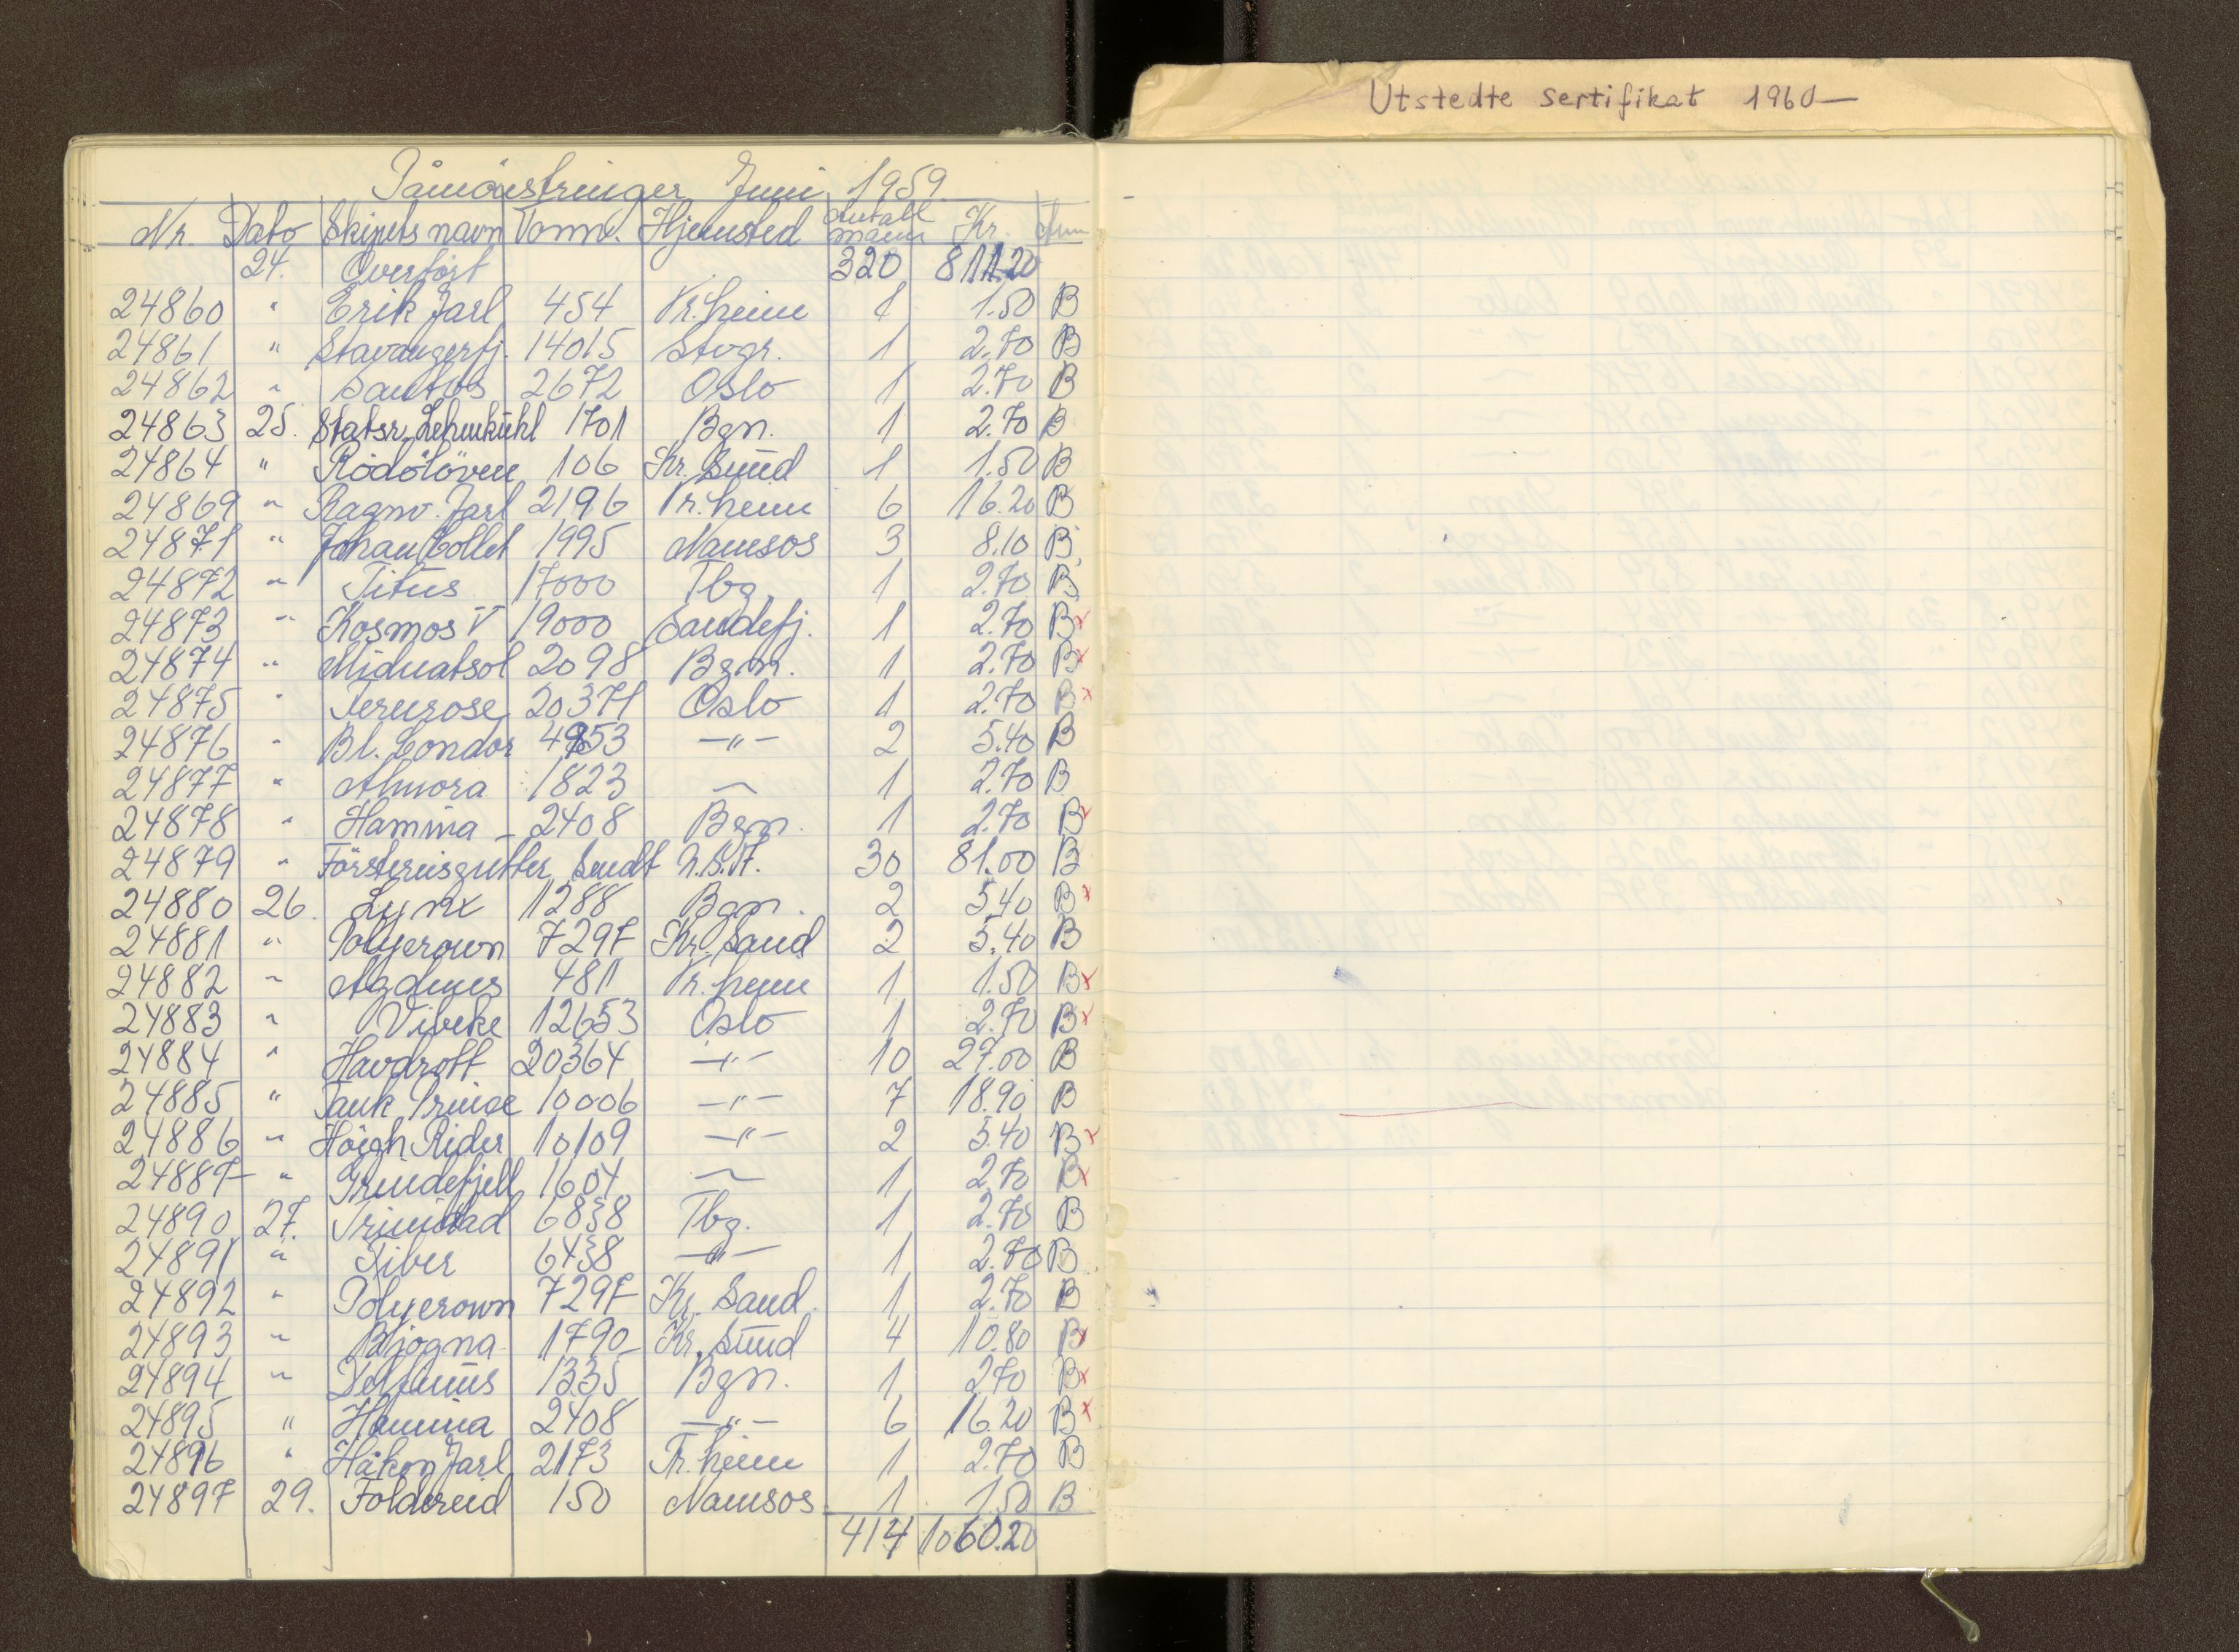 Utstedte sertifikat 1960—
Påmönstringer Juni 1959.
Nr. Dato Skipets navn Tonn. Hjemsted Antall mann Kr. Anm
24. Överfört 320 811.20
24860 " Erik Jarl 454 Tr.heim 1 1.50 B
24861 " Stavangerfj. 14015 Stvgr. 1 2.70 B
24862 " Santos 2672 Oslo 1 2.70 B
24863 25. Statsr. Lehmkühl 1701 Bgn. 1 2.70 B
24864 " Rödölöven 106 Kr. Sund 1 1.50 B
24869 " Ragnv. Jarl 2196 Tr.heim 6 16.20 B
24871 " Johan Collet 1995 Namsos 3 8.10 B
24872 " Titus 17000 Tbg. 1 2.70 B
24873 " Kosmos V 19000 Sandefj. 1 2.70 Bx
24874 " Midnatsol 2098 Bgn. 1 2.70 Bx
24875 " Fernrose 20371 Oslo 1 2.70 Bx
24876 " Bl. Londor 4953 —"— 2 5.40 B
24877 " Almora 1823 — 1 2.70 B
24878 " Hamina - 2408 Bgn. 1 2.70 Bx
24879 " Försterisgutter Sendt N.S.F. 30 81.00 B
24880 26. Lynx 1288 Bgn. 2 5.40 Bx
24881 " Polycrown 7297 Kr. Sand 2 5.40 B
24882 " Agdenes 481 Tr.heim 1 1.50 Bx
24883 " Vibeke 12653 Oslo 1 2.70 Bx
24884 " Havdrott 20364 —"— 10 27.00 B
24885 " Tank Prince 10006 —"— 7 18.90 B
24886 " Höegh Rider 10109 —"— 2 5.40 Bx
24887 " Grindefjell 1604 — 1 2.70 Bx
24890 27. Trinidad 6838 Tbg. 1 2.70 B
24891 " Tiber 6438 —"— 1 2.70 B
24892 " Polycrown 7297 Kr. Sand. 1 2.70 B
24893 " Bjogna 1790 Kr. Sund 4 10.80 Bx
24894 " Delfinus 1335 Bgn. 1 2.70 Bx
24895 " Hamina 2408 —"— 6 16.20 Bx
24896 " Håkon Jarl 2173 Tr.heim 1 2.70 B
24897 29. Foldereid 150 Namsos 1 1.50 B
414 1060.20